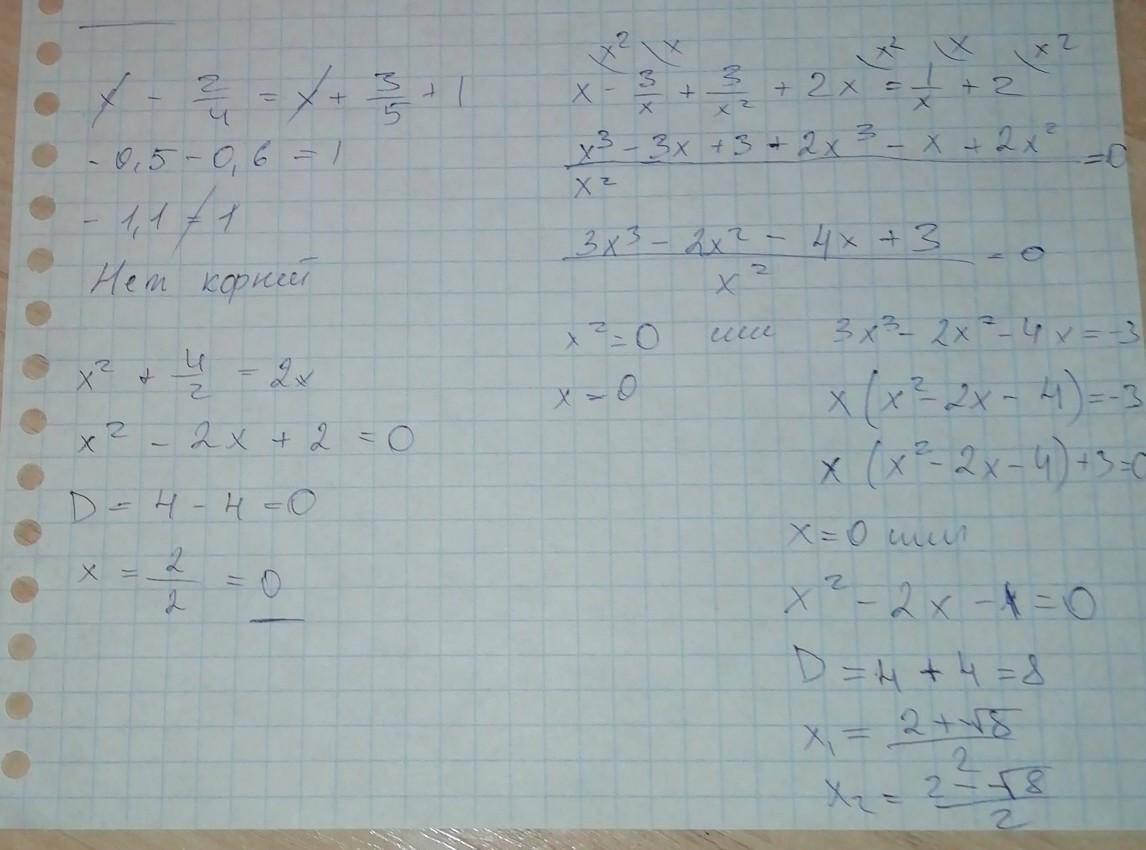 x - 2/4 = x + 3/5 + 1
- 0,5 - 0,6 = 1
- 1,1 ≠ 1
Нет корний
x² + 4/2 = 2x
x² - 2x + 2 = 0
D = 4 - 4 = 0
x = 2/2 = 0
x² x x² x x²
x - 3/x + 3/x² + 2x = 1/x + 2
(x³ - 3x + 3 + 2x³ - x + 2x²)/x² = 0
(3x³ - 2x² - 4x + 3)/x² = 0
x² = 0 или 3x³ - 2x² - 4x = -3
x = 0 x(x² - 2x - 4) = -3
x(x² - 2x - 4) + 3 = 0
x = 0 или
x² - 2x - 1 = 0
D = 4 + 4 = 8
x₁ = (2 + √8)/2
x₂ = (2 - √8)/2